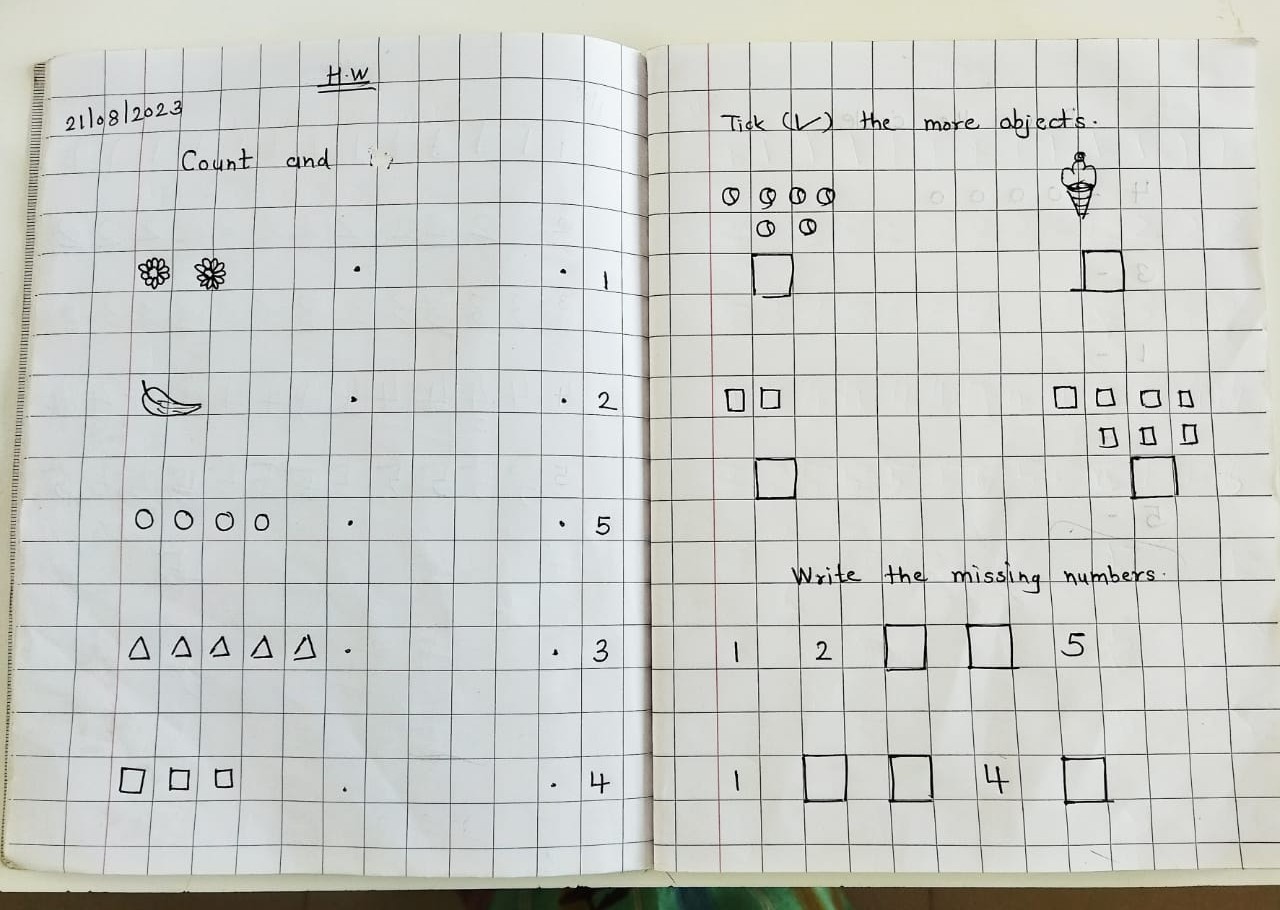 H.W
21/08/2023
Count and
1
2
5
3
4
Tick (✓) the more abjects.
Write the missing numbers.
1 2 5
1 4